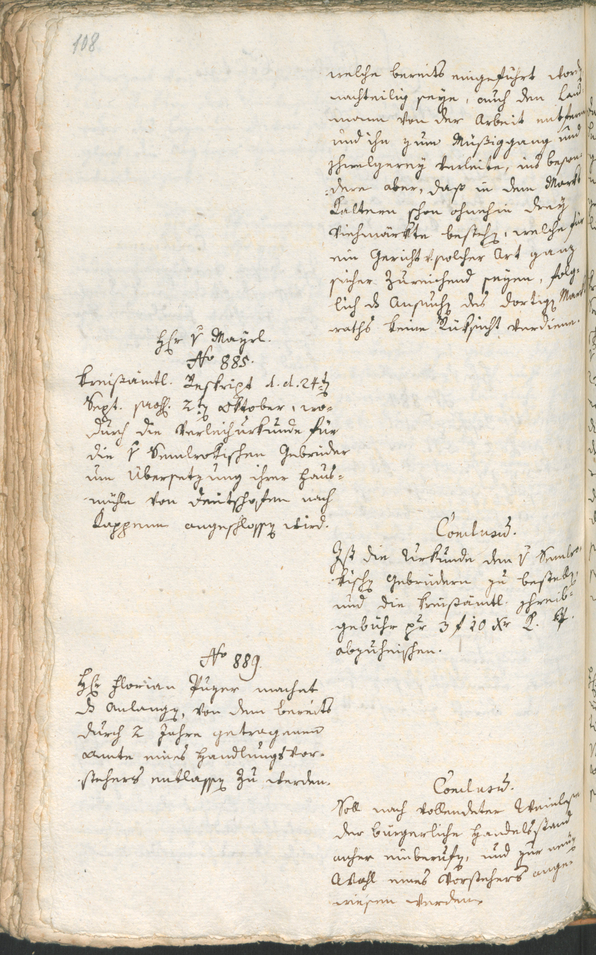 108
welche bereits eingeführt word
nachteilig seye, auch den Land
mann von der Arbeit entferne
und ihn zum Müßiggang und
schwelgerey verleite, ins beson
dere aber, daß in dem Markt
Kaltern schon ohnehin drey
Viehmärkte bestehen, welche für
ein Gericht solcher Art ganz
sicher zureichend seyen, folg-
lich das Ansuchen des dortigen Markt
raths keine Rüksicht verdiene.
Herr v Mayrl.
No 885.
Kreisämtl. Reskript d. d. 24ten
Sept. 2ten Oktober, wo-
durch die Verleihurkunde für
die v Semlrokischen Gebrüder
um Übersetzung ihrer Haus-
mühle von Deutschofen nach
Kappenn angeschlossen wird.
Conclusum.
Ist die Urkunde den v Semlro-
kischen Gebrüdern zu bestellen,
und die kreisämtl. schreib-
gebühr pr 3 f 20 xr
abzuheischen.
No 889.
Herr Florian Puzer machet
das Anlangen, von dem bereits
durch 2 Jahre getragenen
Amte eines Handlungsvor-
stehers entlassen zu werden.
Conclusum.
Soll nach vollendeter Weinlese
der bürgerliche Handelsstand
anher einberufen, und zur neuen
Wahl eines Vorstehers ange-
wiesen werden.